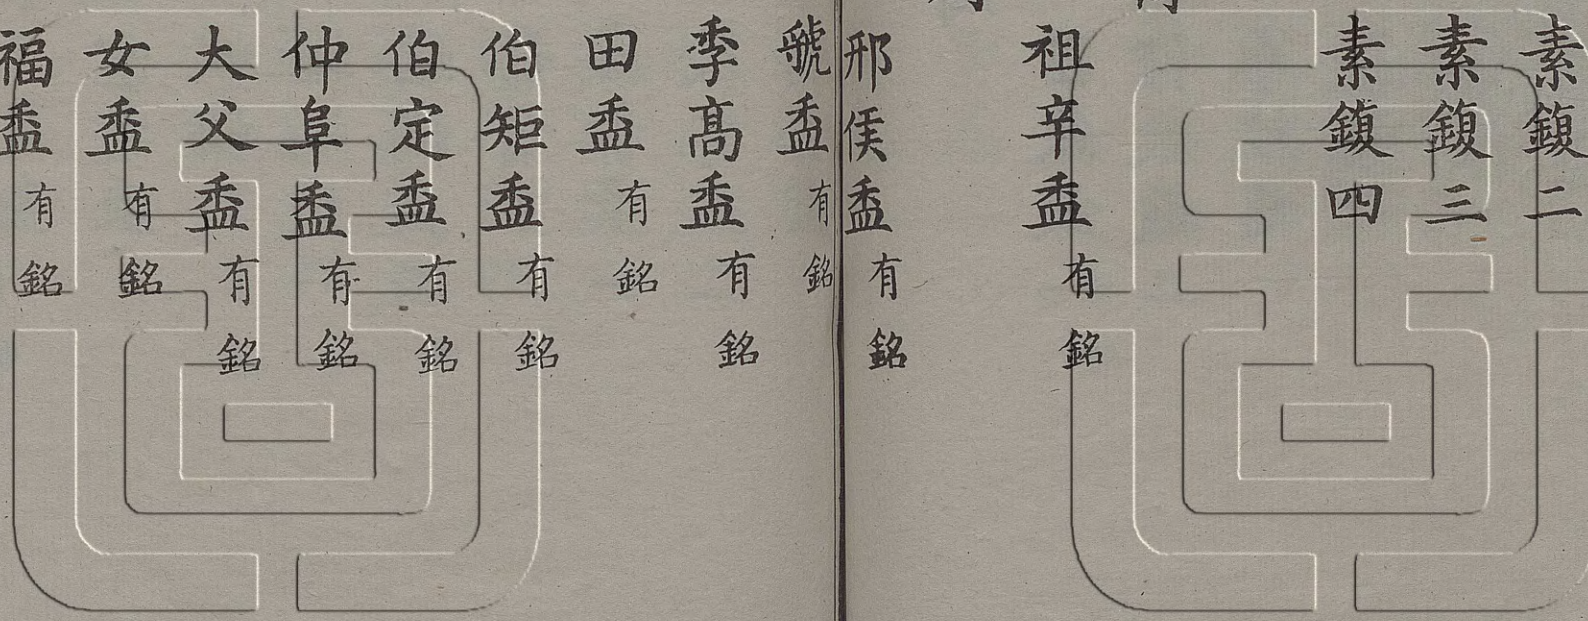 素鍑二
素鍑三
素鍑四
祖辛盉有銘
邢侯盉有銘
虢盉有銘
季髙盉有銘
田盉有銘
伯矩盉有銘
伯定盉有銘
仲阜盉有銘
大父盉有銘
女盉有銘
福盉有銘